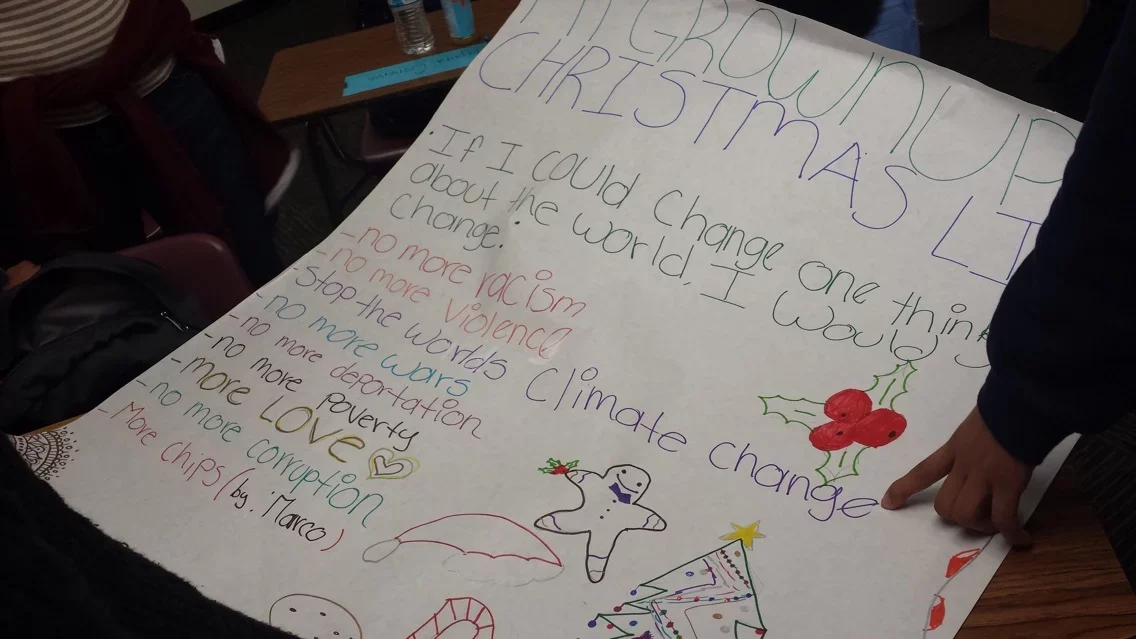 GROWNUP
CHRISTMAS LI
• If I could change one thing
about the world, I would
change:
- no more racism
- no more violence
- Stop the worlds climate change
- no more wars
- no more deportation
- no more poverty
- more LOVE
- no more corruption
- More chips (by: Marco)